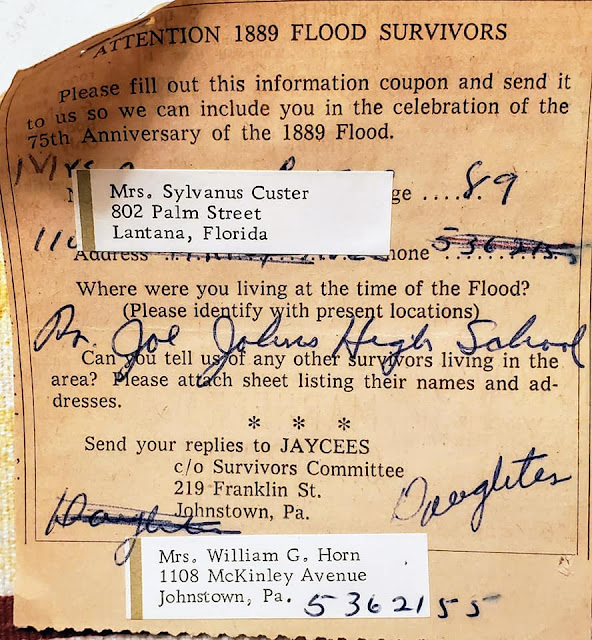 ATTENTION 1889 FLOOD SURVIVORS
Please fill out this information coupon and send it
to us so we can include you in the celebration of the
75th Anniversary of the 1889 Flood.
Mrs. ge ...... 89
Mrs. Sylvanus Custer
802 Palm Street
Lantana, Florida
Address hone 5362155
Where were you living at the time of the Flood?
(Please identify with present locations)
Joe Johns High School
Can you tell us of any other survivors living in the
area? Please attach sheet listing their names and ad-
dresses.
* * *
Send your replies to JAYCEES
c/o Survivors Committee
219 Franklin St.
Johnstown, Pa.
Daughter Daughter
Mrs. William G. Horn
1108 McKinley Avenue
Johnstown, Pa. 5362155